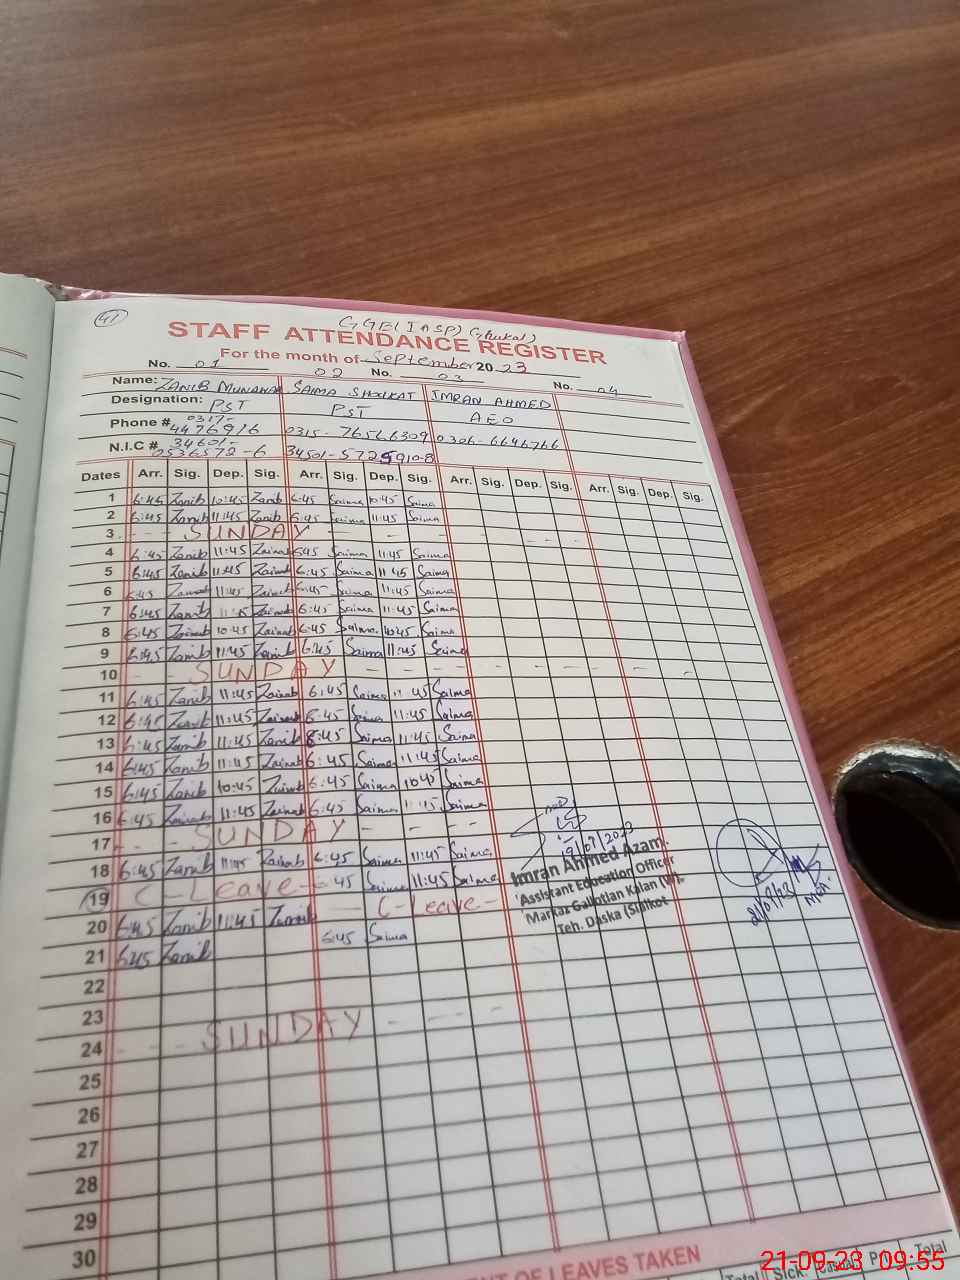 41
GGES (IASP) Ghukal
STAFF ATTENDANCE REGISTER
For the month of September 2023
No. 01 02 No. 03 No. 04
Name: ZANIB MUNAWAR SAIMA SHOUKAT IMRAN AHMED
Designation: PST PST AEO
Phone # 0317-4476916 0315- 0306-6646766
N.I.C # 34601-0536572-6
Dates Arr. Sig. Dep. Sig. Arr. Sig. Dep. Sig. Arr. Sig. Dep. Sig. Arr. Sig. Dep. Sig.
1 6:45 Zanib 10:45 Zanib 6:45 Saima 10:45 Saima
2 6:45 Zanib 11:45 Zanib 6:45 Saima 11:45 Saima
3 - - - SUNDAY - - - - - -
4 6:45 Zanib 11:45 Zainab 6:45 Saima 11:45 Saima
5 6:45 Zanib 11:45 Zainab 6:45 Saima 11:45 Saima
6 6:45 Zainab 11:45 Zainab 6:45 Saima 11:45 Saima
7 6:45 Zanib 11:45 Zainab 6:45 Saima 11:45 Saima
8 6:45 Zainab 10:45 Zainab 6:45 Saima 10:45 Saima
9 6:45 Zanib 11:45 Zanib 6:45 Saima 11:45 Saima
10 - - SUNDAY - - - - - - - - -
11 6:45 Zanib 11:45 Zainab 6:45 Saima 11:45 Saima
12 6:45 Zanib 11:45 Zainab 6:45 Saima 11:45 Saima
13 6:45 Zanib 11:45 Zanib 6:45 Saima 11:45 Saima
14 6:45 Zanib 11:45 Zainab 6:45 Saima 11:45 Saima
15 6:45 Zanib 10:45 Zainab 6:45 Saima 10:45 Saima
16 6:45 Zainab 11:45 Zainab 6:45 Saima 11:45 Saima
17 - - - SUNDAY - - - -
18 6:45 Zanib 11:45 Zainab 6:45 Saima 11:45 Saima
19 C-Leave- 6:45 Saima 11:45 Saima
20 6:45 Zanib 11:45 Zainab - C-Leave-
21 6:45 Zanib 6:45 Saima
22
23
24 - - - SUNDAY - - - -
25
26
27
28
29
30
Imran Ahmed Azam
Assistant Education Officer
Markaz Gallotian Kalan (W).
Teh. Daska (Sialkot
OF LEAVES TAKEN
Total Sick. Casual P/L Total
21-09-23 09:55